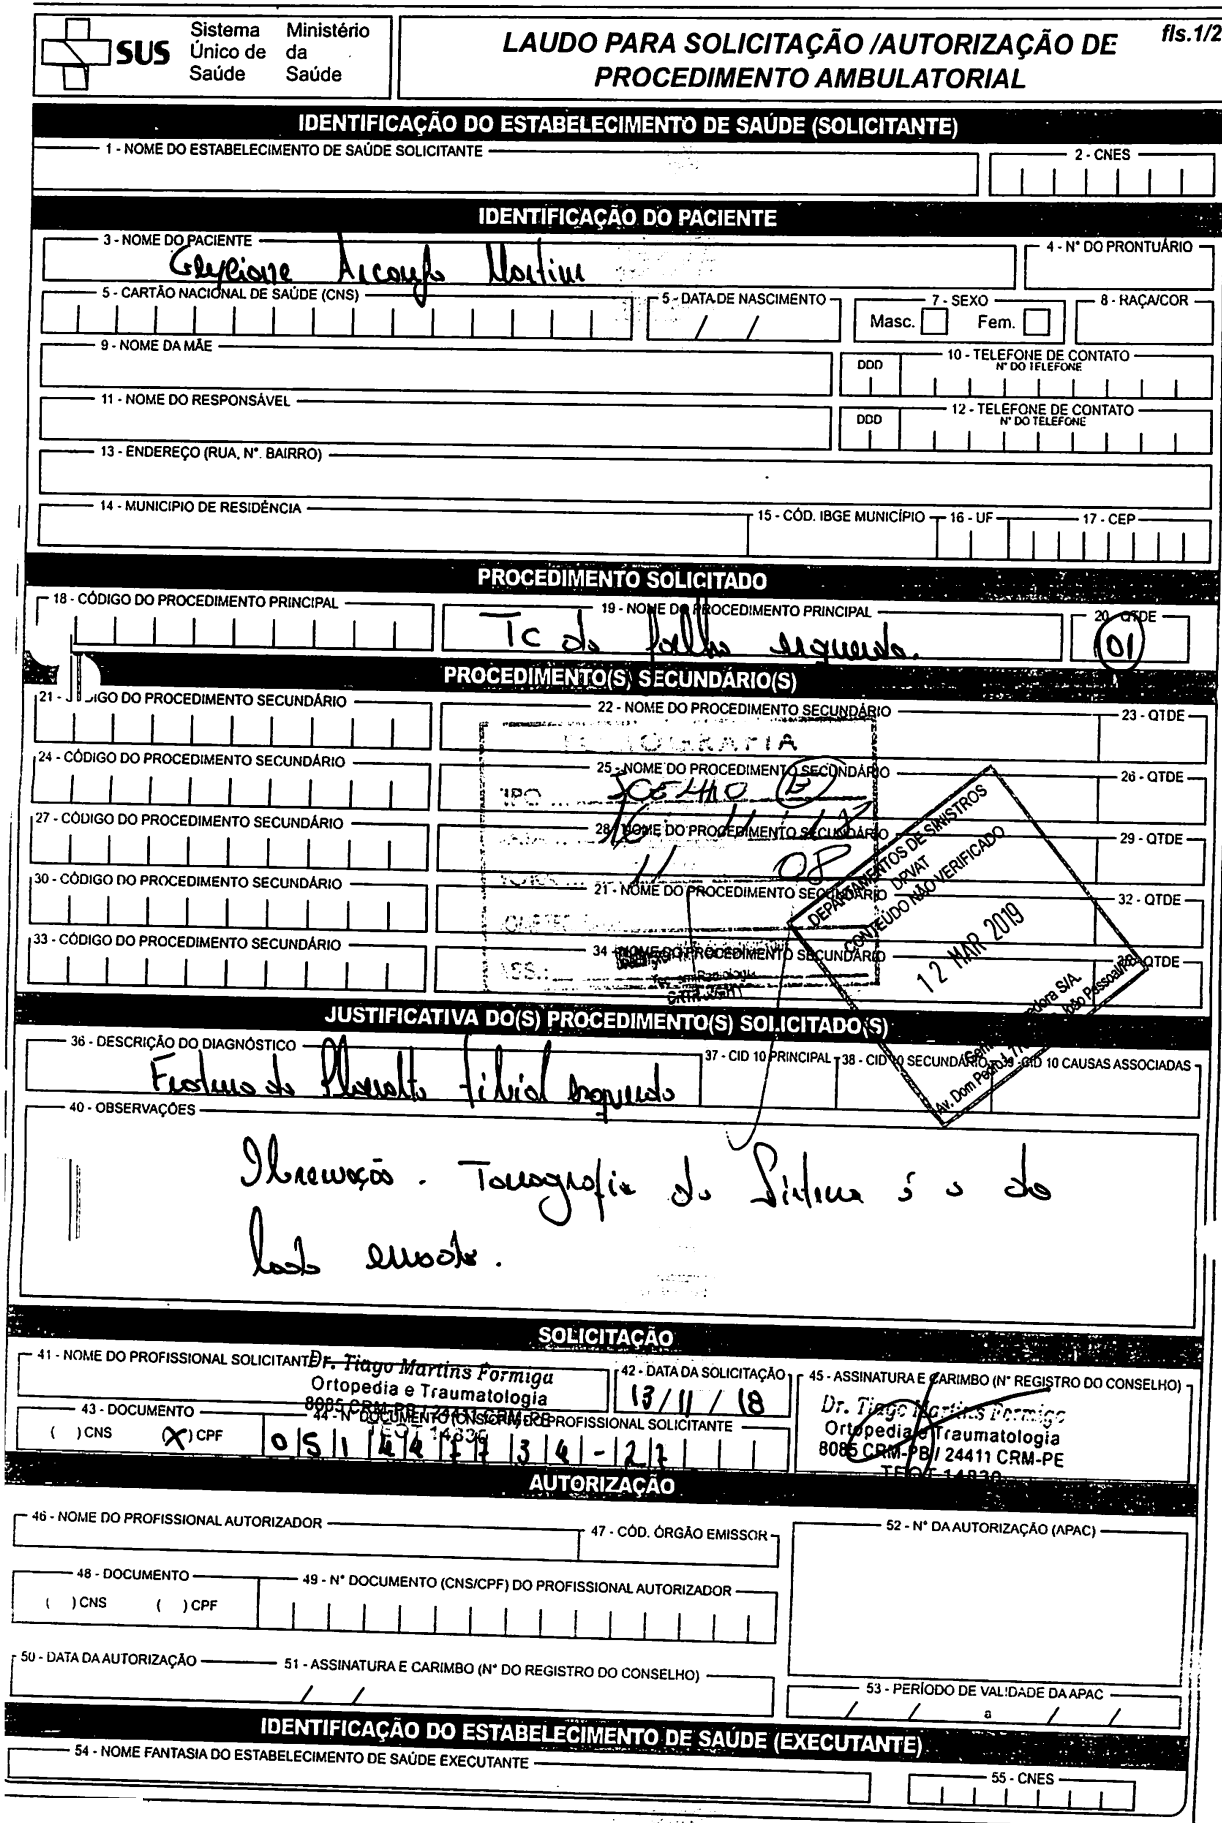 fls.1/2
SUS
Sistema Único de Saúde
Ministério da Saúde
LAUDO PARA SOLICITAÇÃO /AUTORIZAÇÃO DE
PROCEDIMENTO AMBULATORIAL
IDENTIFICAÇÃO DO ESTABELECIMENTO DE SAÚDE (SOLICITANTE)
1 - NOME DO ESTABELECIMENTO DE SAÚDE SOLICITANTE
2 - CNES
IDENTIFICAÇÃO DO PACIENTE
3 - NOME DO PACIENTE
4 - N° DO PRONTUÁRIO
5 - CARTÃO NACIONAL DE SAÚDE (CNS)
5 - DATA DE NASCIMENTO
/ /
7 - SEXO
Masc. Fem.
8 - RAÇA/COR
9 - NOME DA MÃE
10 - TELEFONE DE CONTATO
DDD N° DO TELEFONE
11 - NOME DO RESPONSÁVEL
12 - TELEFONE DE CONTATO
DDD N° DO TELEFONE
13 - ENDEREÇO (RUA, N°. BAIRRO)
14 - MUNICIPIO DE RESIDÊNCIA
15 - CÓD. IBGE MUNICÍPIO
16 - UF
17 - CEP
PROCEDIMENTO SOLICITADO
18 - CÓDIGO DO PROCEDIMENTO PRINCIPAL
19 - NOME DO PROCEDIMENTO PRINCIPAL
Tc do Joelho esquerdo.
20 - QTDE
01
PROCEDIMENTO(S) SECUNDÁRIO(S)
22 - NOME DO PROCEDIMENTO SECUNDÁRIO
23 - QTDE
24 - CÓDIGO DO PROCEDIMENTO SECUNDÁRIO
25 - NOME DO PROCEDIMENTO SECUNDÁRIO
JOELHO (E)
26 - QTDE
27 - CÓDIGO DO PROCEDIMENTO SECUNDÁRIO
28 - NOME DO PROCEDIMENTO SECUNDÁRIO
29 - QTDE
30 - CÓDIGO DO PROCEDIMENTO SECUNDÁRIO
11 08
21 - NOME DO PROCEDIMENTO SECUNDÁRIO
32 - QTDE
33 - CÓDIGO DO PROCEDIMENTO SECUNDÁRIO
34 - NOME DO PROCEDIMENTO SECUNDÁRIO
QTDE
ASS.:
DEPARTAMENTOS DE SINISTROS
DPVAT
CONTEÚDO NÃO VERIFICADO
12 MAR 2019
Av. Dom Pedro I,
João Pessoa
JUSTIFICATIVA DO(S) PROCEDIMENTO(S) SOLICITADO(S)
36 - DESCRIÇÃO DO DIAGNÓSTICO
Fratura do Planalto tibial esquerdo
37 - CID 10 PRINCIPAL
38 - CID 10 SECUNDÁRIO
39 - CID 10 CAUSAS ASSOCIADAS
40 - OBSERVAÇÕES
Tomografia do Sistema é a do
lado errado.
SOLICITAÇÃO
41 - NOME DO PROFISSIONAL SOLICITANTE
Dr. Tiago Martins Formiga
Ortopedia e Traumatologia
8085 CRM-PB / 24411 CRM-PE
TEOT 14830
42 - DATA DA SOLICITAÇÃO
13/11/18
45 - ASSINATURA E CARIMBO (N° REGISTRO DO CONSELHO)
Dr. Tiago Martins Formiga
Ortopedia e Traumatologia
8085 CRM-PB / 24411 CRM-PE
TEOT 14830
43 - DOCUMENTO
( ) CNS (X) CPF
44 - N° DOCUMENTO (CNS/CPF) DO PROFISSIONAL SOLICITANTE
051447734-27
AUTORIZAÇÃO
46 - NOME DO PROFISSIONAL AUTORIZADOR
47 - CÓD. ÓRGÃO EMISSOR
52 - N° DA AUTORIZAÇÃO (APAC)
48 - DOCUMENTO
( ) CNS ( ) CPF
49 - N° DOCUMENTO (CNS/CPF) DO PROFISSIONAL AUTORIZADOR
50 - DATA DA AUTORIZAÇÃO
/ /
51 - ASSINATURA E CARIMBO (N° DO REGISTRO DO CONSELHO)
53 - PERÍODO DE VALIDADE DA APAC
/ / a / /
IDENTIFICAÇÃO DO ESTABELECIMENTO DE SAÚDE (EXECUTANTE)
54 - NOME FANTASIA DO ESTABELECIMENTO DE SAÚDE EXECUTANTE
55 - CNES